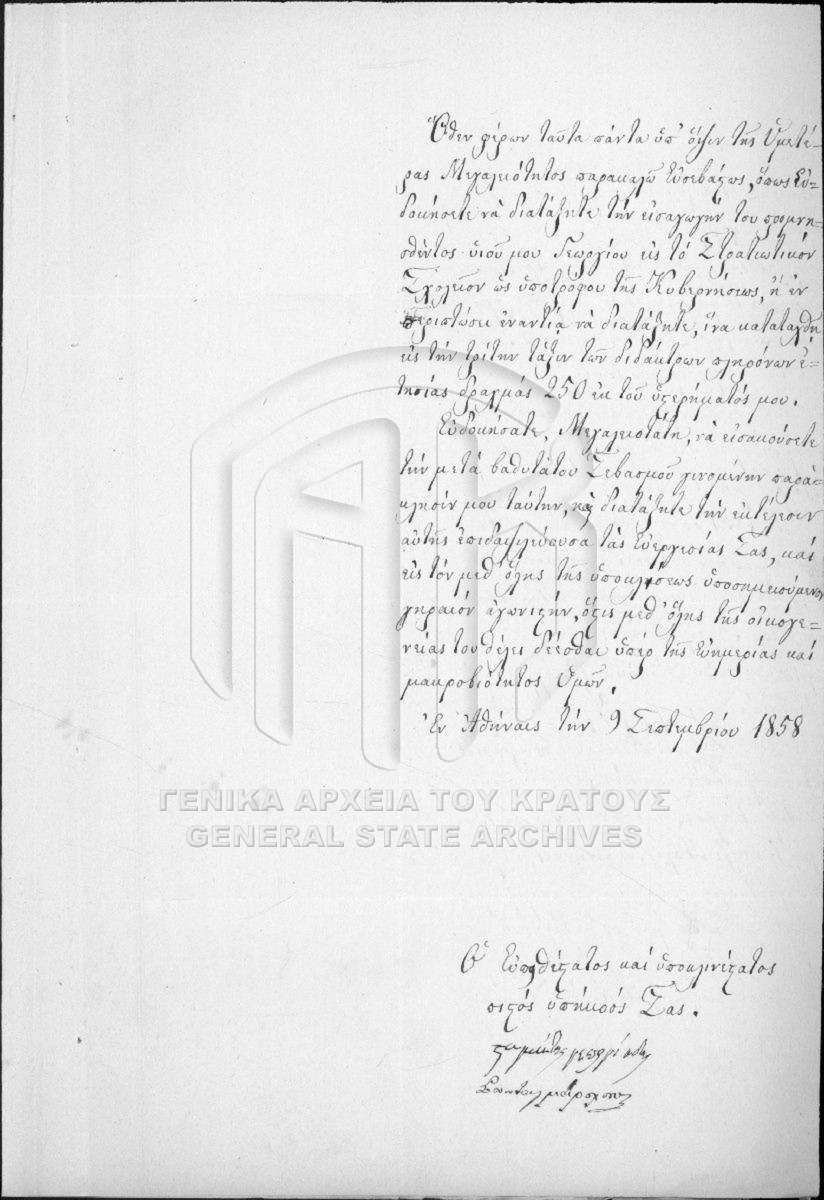 Ὅθεν φέρων ταῦτα πάντα ὑπ' ὄψιν τῆς Ὑμετέ-
ρας Μεγαλειότητος παρακαλῶ Εὐσεβάστως, ὅπως Εὐ-
δοκήσετε νὰ διατάξητε τὴν εἰσαγωγὴν τοῦ προμνη-
σθέντος υἱοῦ μου Γεωργίου εἰς τὸ Στρατιωτικὸν
Σχολεῖον ὡς ὑποτρόφου τῆς Κυβερνήσεως, ἢ ἐν
περιπτώσει ἐναντίᾳ νὰ διατάξητε, ἵνα καταταχθῇ
εἰς τὴν τρίτην τάξιν τῶν διδάκτρων πληρόνων ἐ-
τησίας δραχμὰς 250 ἐκ τοῦ ὑστερήματός μου.
Εὐδοκήσατε, Μεγαλειοτάτη, νὰ εἰσακούσετε
τὴν μετὰ βαθυτάτου Σεβασμοῦ γινομένην παρά-
κλησίν μου ταύτην, καὶ διατάξητε τὴν ἐκτέλεσιν
αὐτῆς ἐπιδαψιλεύουσα τὰς Εὐεργεσίας Σας, καὶ
εἰς τὸν μεθ' ὅλης τῆς ὑποκλίσεως ὑποσημειούμενον
γηραιὸν ἀγωνιστὴν, ὅστις μεθ' ὅλης τῆς οἰκογε-
νείας του θέλει δέεσθαι ὑπὲρ τῆς εὐημερίας καὶ
μακροβιότητος Ὑμῶν.
Ἐν Ἀθήναις τὴν 9 Σεπτεμβρίου 1858
ΓΕΝΙΚΑ ΑΡΧΕΙΑ ΤΟΥ ΚΡΑΤΟΥΣ
GENERAL STATE ARCHIVES
Ὁ Εὐπειθέστατος καὶ ὑποκλινέστατος
πιστός ὑπήκοός Σας.